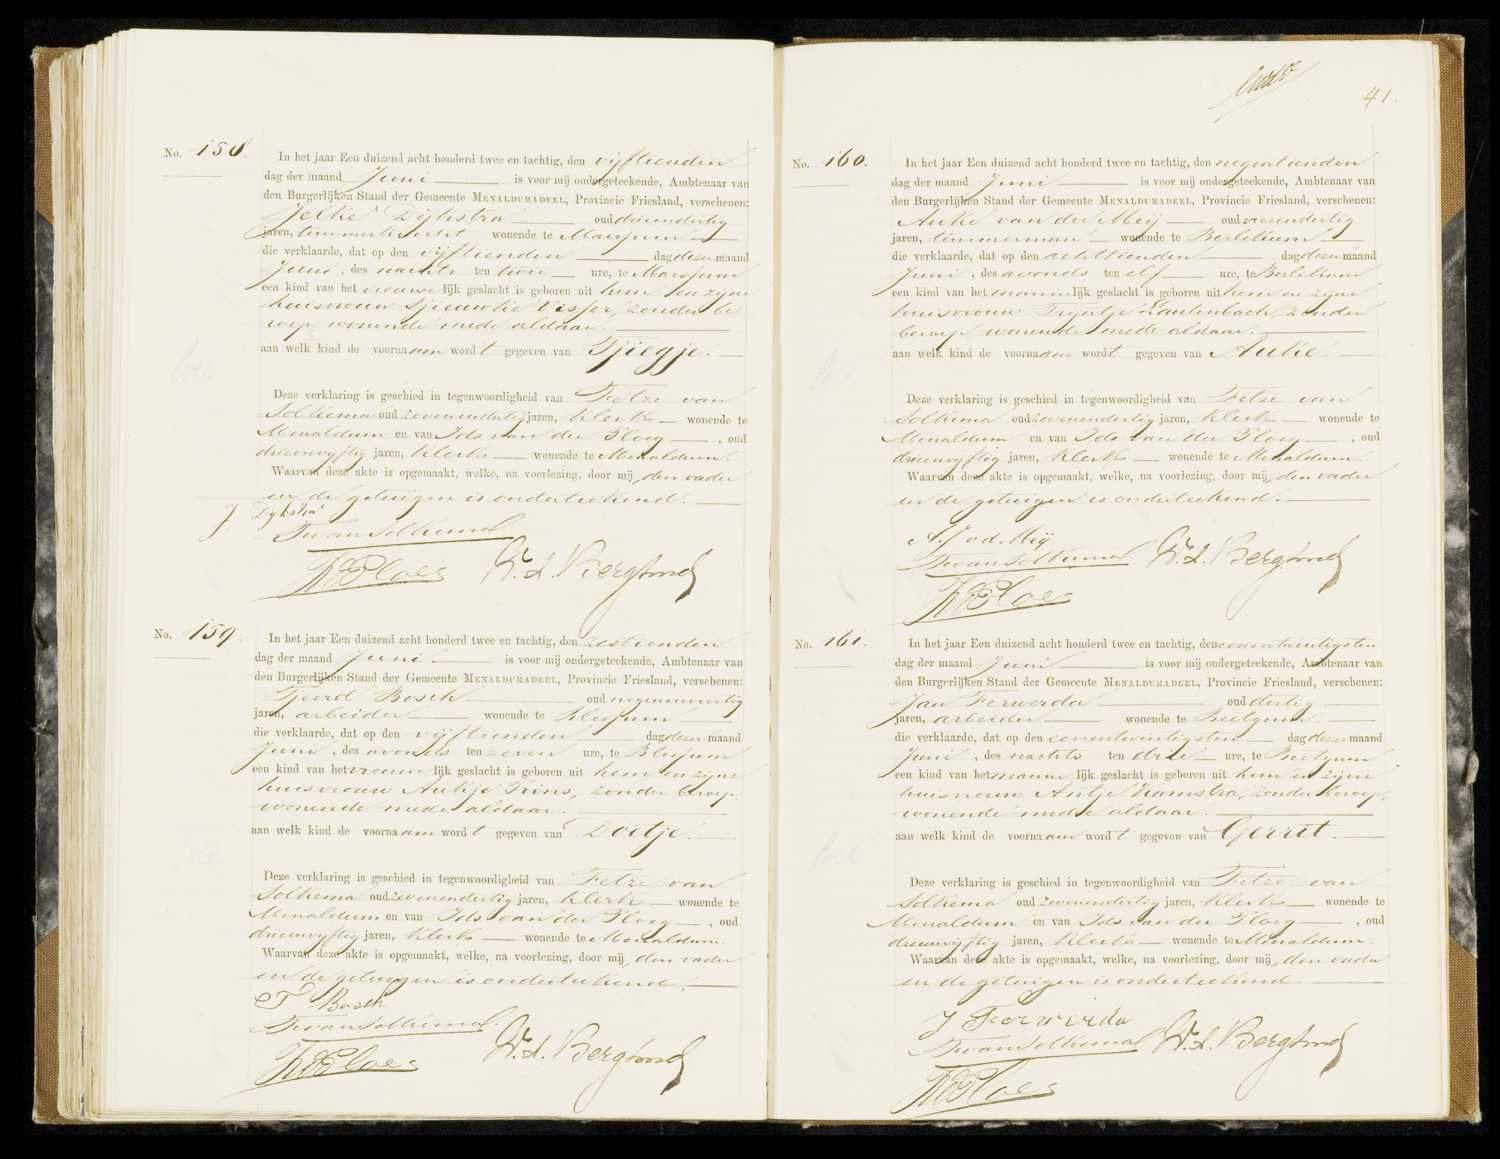 No. 158.
In het jaar Een duizend acht honderd twee en tachtig, den vijftienden
dag der maand Juni is voor mij ondergeteekende, Ambtenaar van
den Burgerlijken Stand der Gemeente MENALDUMADEEL, Provincie Friesland, verschenen:
Jelke Dijkstra oud drieendertig
jaren, wonende te Marssum
die verklaarde, dat op den vijftienden dag dezer maand
Juni, des nachts ten twee ure, te Marssum
een kind van het vrouwelijk geslacht is geboren uit hem en zijne
huisvrouw Sjieuwke Visser, zonder be
roep, wonende mede aldaar.
aan welk kind de voornaam wordt gegeven van Tjiegje.
Deze verklaring is geschied in tegenwoordigheid van Fetze van
Solkema oud zevenendertig jaren, klerk wonende te
Menaldum en van Ids van der Ploeg, oud
drieenvijftig jaren, klerk wonende te Menaldum.
Waarvan deze akte is opgemaakt, welke, na voorlezing, door mij, den vader
en de getuigen is onderteekend.
J Dykstra
F van Solkema
W.A. Bergsma
No. 159.
In het jaar Een duizend acht honderd twee en tachtig, den zestienden
dag der maand Juni is voor mij ondergeteekende, Ambtenaar van
den Burgerlijken Stand der Gemeente MENALDUMADEEL, Provincie Friesland, verschenen:
Tjeerd Bosch oud negenenveertig
jaren, arbeider wonende te Blessum
die verklaarde, dat op den vijftienden dag dezer maand
Juni, des avonds ten zeven ure, te Blessum
een kind van het vrouwelijk geslacht is geboren uit hem en zijne
huisvrouw Antje Prins, zonder beroep,
wonende mede aldaar.
aan welk kind de voornaam wordt gegeven van Doetje.
Deze verklaring is geschied in tegenwoordigheid van Fetze van
Solkema oud zevenendertig jaren, klerk wonende te
Menaldum en van Ids van der Ploeg, oud
drieenvijftig jaren, klerk wonende te Menaldum.
Waarvan deze akte is opgemaakt, welke, na voorlezing, door mij, den vader
en de getuigen is onderteekend.
T Bosch
F van Solkema
W.A. Bergsma
41.
No. 160.
In het jaar Een duizend acht honderd twee en tachtig, den negentienden
dag der maand Juni is voor mij ondergeteekende, Ambtenaar van
den Burgerlijken Stand der Gemeente MENALDUMADEEL, Provincie Friesland, verschenen:
Auke van der Meij oud vierendertig
jaren, timmerman wonende te Berlikum
die verklaarde, dat op den achttienden dag dezer maand
Juni, des avonds ten elf ure, te Berlikum
een kind van het mannelijk geslacht is geboren uit hem en zijne
huisvrouw Trijntje Lautenbach, zonder
beroep, wonende mede aldaar.
aan welk kind de voornaam wordt gegeven van Auke.
Deze verklaring is geschied in tegenwoordigheid van Fetze van
Solkema oud zevenendertig jaren, klerk wonende te
Menaldum en van Ids van der Ploeg, oud
drieenvijftig jaren, klerk wonende te Menaldum.
Waarvan deze akte is opgemaakt, welke, na voorlezing, door mij, den vader
en de getuigen is onderteekend.
A. J v d Meij
F van Solkema
W.A. Bergsma
No. 161.
In het jaar Een duizend acht honderd twee en tachtig, den eenentwintigsten
dag der maand Juni is voor mij ondergeteekende, Ambtenaar van
den Burgerlijken Stand der Gemeente MENALDUMADEEL, Provincie Friesland, verschenen:
Jan Ferwerda oud dertig
jaren, arbeider wonende te Beetgum
die verklaarde, dat op den eenentwintigsten dag dezer maand
Juni, des nachts ten drie ure, te Beetgum
een kind van het mannelijk geslacht is geboren uit hem en zijne
huisvrouw Antje Kamstra, zonder beroep,
wonende mede aldaar.
aan welk kind de voornaam wordt gegeven van Gerrit.
Deze verklaring is geschied in tegenwoordigheid van Fetze van
Solkema oud zevenendertig jaren, klerk wonende te
Menaldum en van Ids van der Ploeg, oud
drieenvijftig jaren, klerk wonende te Menaldum.
Waarvan deze akte is opgemaakt, welke, na voorlezing, door mij, den vader
en de getuigen is onderteekend
J Ferwerda
F van Solkema
W.A. Bergsma